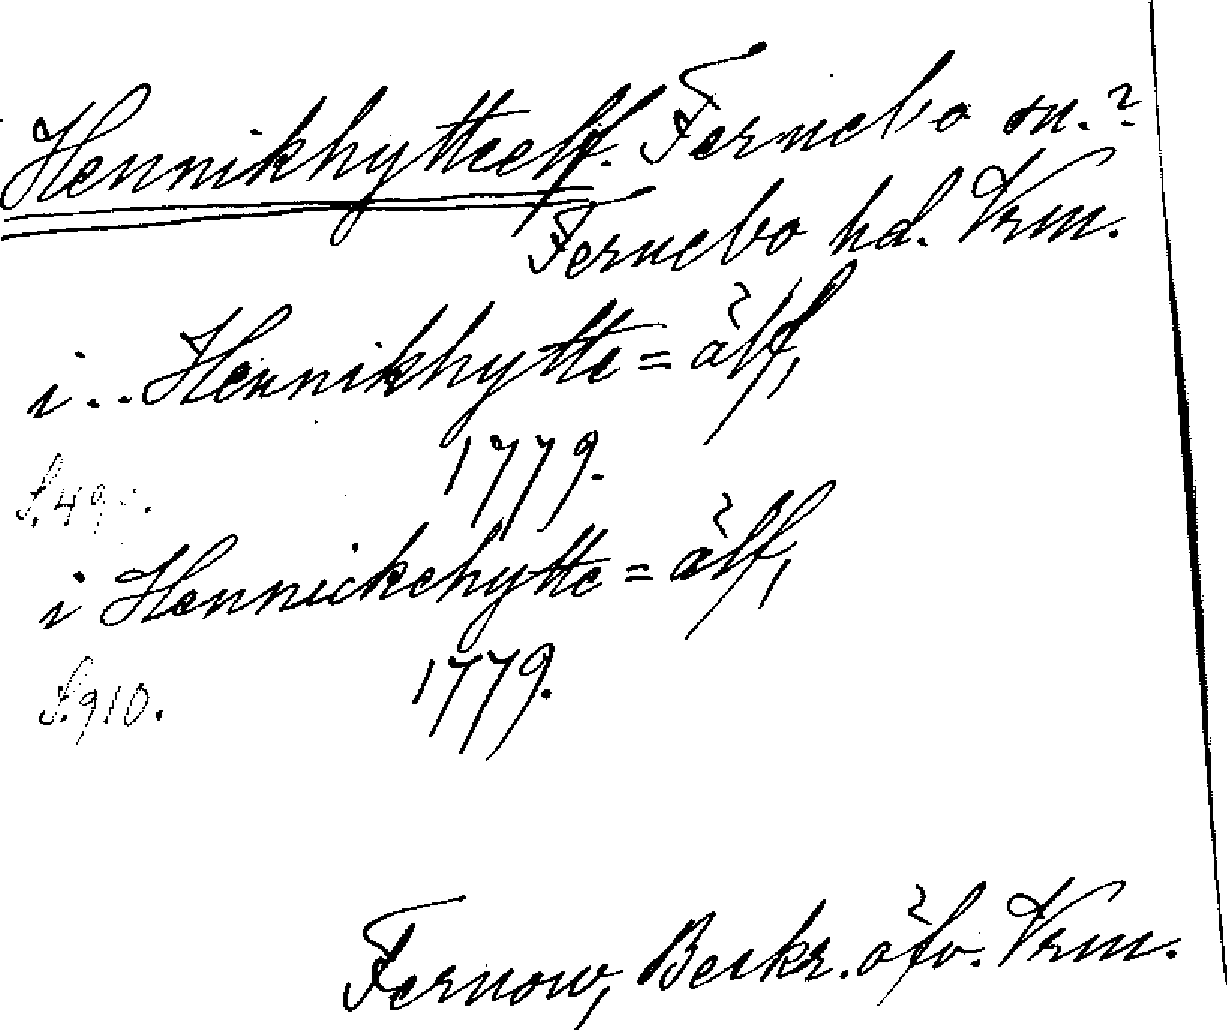 Hennikhytteelf. Fernebo sn.?
Fernebo hd. Vrm.
i.. Hennikhytte = älf,
1779.
S. 49
i Hennickehytte = älf,
1779.
S. 910.
Fernow, Beskr. öfv. Vrm.